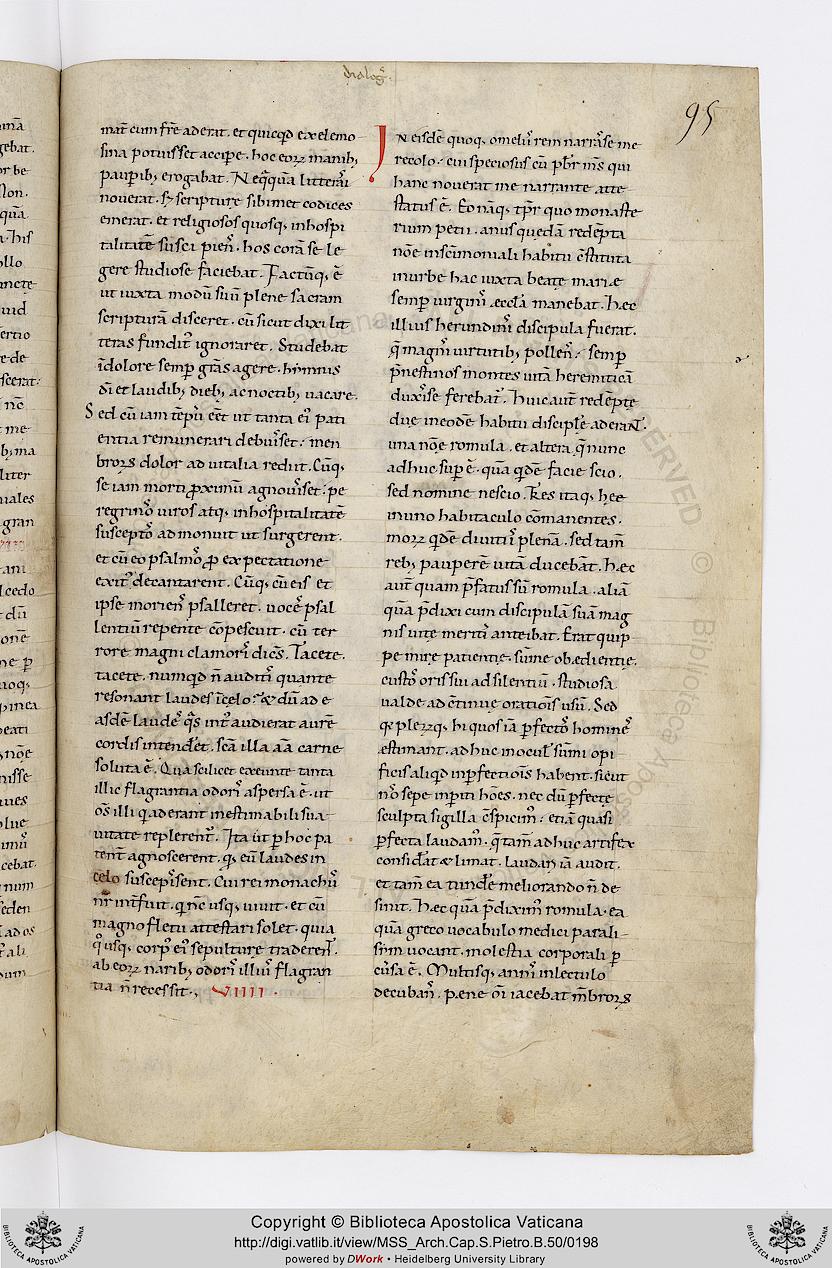 dialog̃.
95
mat̃ cum fr̃e aderat. et quicq̃d ex elemo
sina potuisset accipe. hoc eorꝝ manib;
paupib; erogabat. Neq̃quã litterãs
noverat. sȝ scripture sibimet codices
emerat. et religiosos quosq; in hospi
talitatẽ suscipiens. hos corã se le
gere studiose faciebat. Factũq; ẽ
ut iuxta modũ suũ plene sacram
scripturã disceret. cũ sicut dixi lit
teras fundit᷒ ignoraret. Studebat
ĩdolore semp grãs agere. hymnis
dĩ et laudib; dieb; ac noctib; vacare.
Sed cũ iam tẽpus eẽt ut tanta ei᷒ pati
entia remunerari debuisset: mem
brorꝝ dolor ad vitalia rediit. Cũq;
se iam morti ꝓximũ agnovisset: pe
regrinos viros atq; in hospitalitatẽ
susceptos admonuit ut surgerent.
et cũ eo psalmos ꝓ expectatione
exit᷒ decantarent. Cũq; cũ eis et
ipse moriens psalleret. voces psal
lentiũ repente cõpescuit. cũ ter
rore magni clamoris dicẽs. Tacete.
tacete. numqd ñ auditis quante
resonant laudes ĩcelo? & dũ ad e
asdẽ laudes q̃s int᷒ audierat aurẽ
cordis intenderet. scã illa aĩa carne
soluta ẽ. Qua scilicet exeunte tanta
illic flagrantia odoris aspersa ẽ. ut
oẽs illi q̇ aderant inestimabili sua
vitate replerent᷒. Ita ut p hoc pa
tent̃ agnoscerent. qđ eũ laudes in
celo suscepissent. Cui rei monach᷒
nr̃ int̃fuit. q̇ ñc usq; vivit. et cũ
magno fletu attestari solet. quia
q᷒usq; corp᷒ ei᷒ sepulture traderent.
ab eorꝝ narib; odoris illius flagran
tia ñ recessit. VIIII.
IN eisdẽ quoq; omeliis rem narrasse me
recolo. cui speciosus cũ pb̃r m̃s qui
hanc noverat me narrante atte
status ẽ. Eo nãq; tp̃r quo monaste
rium petii. anus quedã redẽpta
nõe in scĩmoniali habitu cõstituta
in urbe hac iuxta beate marię
semp virginis ęccl̃a manebat. Hęc
illius herundinis discipula fuerat.
q̃ magnis virtutib; pollens. semp
p̃nestinos montes vitã heremiticã
duxisse ferebat᷒. Huic aut̃ redẽptę
due in eodẽ habitu disciplę aderant.
una nõe romula. et altera q̃ nunc
adhuc sup ẽ. quã qdẽ facie scio.
sed nomine nescio. Tres itaq; hęc
in uno habitaculo cõmanentes.
morꝝ qdẽ divitiis plenã. sed tam̃
reb; pauperẽ vitã ducebãt. Hęc
aut̃ quam p̃fatus sũ romula. aliã
quã p̃dixi cum discipulã suã mag
nis vite meritis anteibat. Erat quip
pe mire patientię. sũme obędientię.
custos oris sui ad silentiũ. studiosa
valde ad cõtinue orationis usũ. Sed
qa pleꝝq; hi quos iã perfectos homines
ęstimant. adhuc in oculis sũmi opi
ficis aliqd inperfectiõis habent. sicut
nos sepe inpiti hoẽs. nec dũ perfecte
sculpta sigilla cõspicim᷒: et iã quasi
perfecta laudam᷒. q̃ tam̃ adhuc artifex
considerat & limat. laudari iã audit.
et tam̃ ea tundere meliorando ñ de
sinit. Hęc quã p̃dixim᷒ romula. ea
quã greco vocabulo medici parali
sim vocant. molestia corporali p
cussa ẽ. Multisq; annis in lectulo
decubans. pene oĩ iacebat mẽbrorꝝ
RESERVED © Biblioteca Apostolica
Copyright © Biblioteca Apostolica Vaticana
http://digi.vatlib.it/view/MSS_Arch.Cap.S.Pietro.B.50/0198
powered by DWork • Heidelberg University Library
BIBLIOTECA APOSTOLICA VATICANA
BIBLIOTECA APOSTOLICA VATICANA